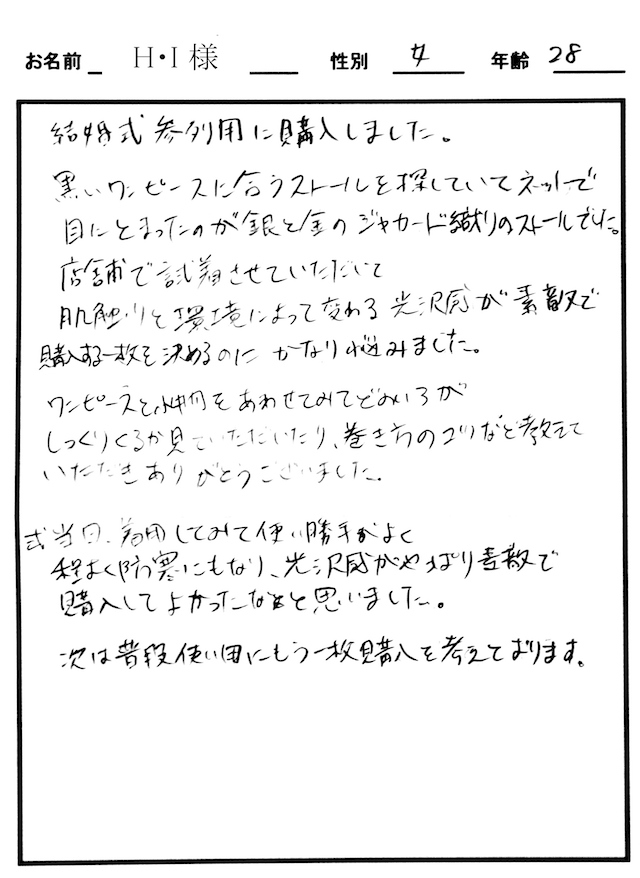 お名前 H・I 様 性別 女 年齢 28
結婚式参列用に購入しました。
黒いワンピースに合うストールを探していてネットで
目にとまったのが銀と金のジャカード織りのストールでした。
店舗で試着させていただいて
肌触りと環境によって変わる光沢感が素敵で
購入する一枚を決めるのにかなり悩みました。
ワンピースと小物をあわせてみてどのいろが
しっくりくるか見ていただいたり、巻き方のコツなど教えて
いただきありがとうございました。
式当日、着用してみて使い勝手がよく
程よく防寒にもなり、光沢感がやっぱり素敵で
購入してよかったなと思いました。
次は普段使い用にもう一枚購入を考えております。